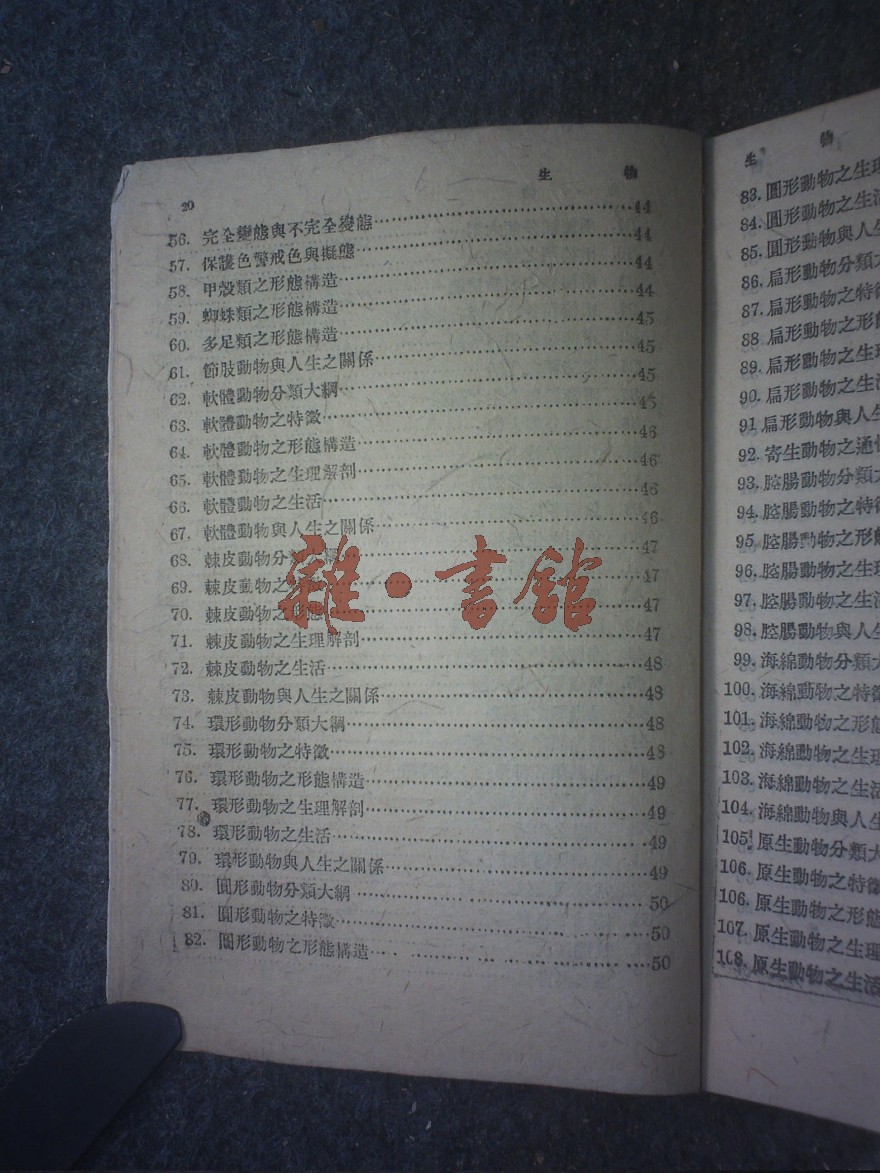 20
生 物
56. 完全變態與不完全變態…44
57. 保護色警戒色與擬態…44
58. 甲殼類之形態構造…44
59. 蜘蛛類之形態構造…44
60. 多足類之形態構造…45
61. 節肢動物與人生之關係…45
62. 軟體動物分類大綱…45
63. 軟體動物之特徵…45
64. 軟體動物之形態構造…46
65. 軟體動物之生理解剖…46
66. 軟體動物之生活…46
67. 軟體動物與人生之關係…46
68. 棘皮動物分類 綱…47
69. 棘皮動物之 …47
70. 棘皮動物之形態…47
71. 棘皮動物之生理解剖…47
72. 棘皮動物之生活…48
73. 棘皮動物與人生之關係…48
74. 環形動物分類大綱…48
75. 環形動物之特徵…48
76. 環形動物之形態構造…49
77. 環形動物之生理解剖…49
78. 環形動物之生活…49
79. 環形動物與人生之關係…49
80. 圓形動物分類大綱…50
81. 圓形動物之特徵…50
82. 圓形動物之形態構造…50
雜·書館
生 物
83. 圓形動物之生理
84. 圓形動物之生活
85. 圓形動物與人
86. 扁形動物分類大
87. 扁形動物之特徵
88. 扁形動物之形態
89. 扁形動物之生理
90. 扁形動物之生活
91 扁形動物與人生
92. 寄生動物之通性
93. 腔腸動物分類大
94. 腔腸動物之特徵
95. 腔腸動物之形態
96. 腔腸動物之生理
97. 腔腸動物之生活
98. 腔腸動物與人生
99. 海綿動物分類大
100. 海綿動物之特徵
101. 海綿動物之形態
102. 海綿動物之生理
103. 海綿動物之生活
104. 海綿動物與人生
105. 原生動物分類大
106. 原生動物之特徵
106. 原生動物之形態
107. 原生動物之生理
108. 原生動物之生活